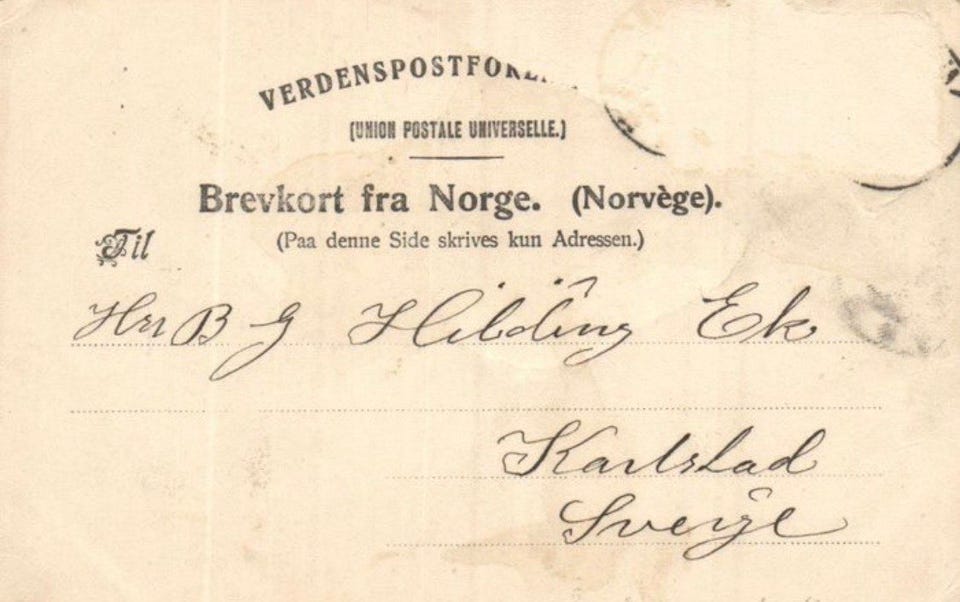 VERDENSPOSTFORE
(UNION POSTALE UNIVERSELLE.)
Brevkort fra Norge. (Norvège).
(Paa denne Side skrives kun Adressen.)
Til
Herr B G Hilding Ek
Karlstad
Sverge